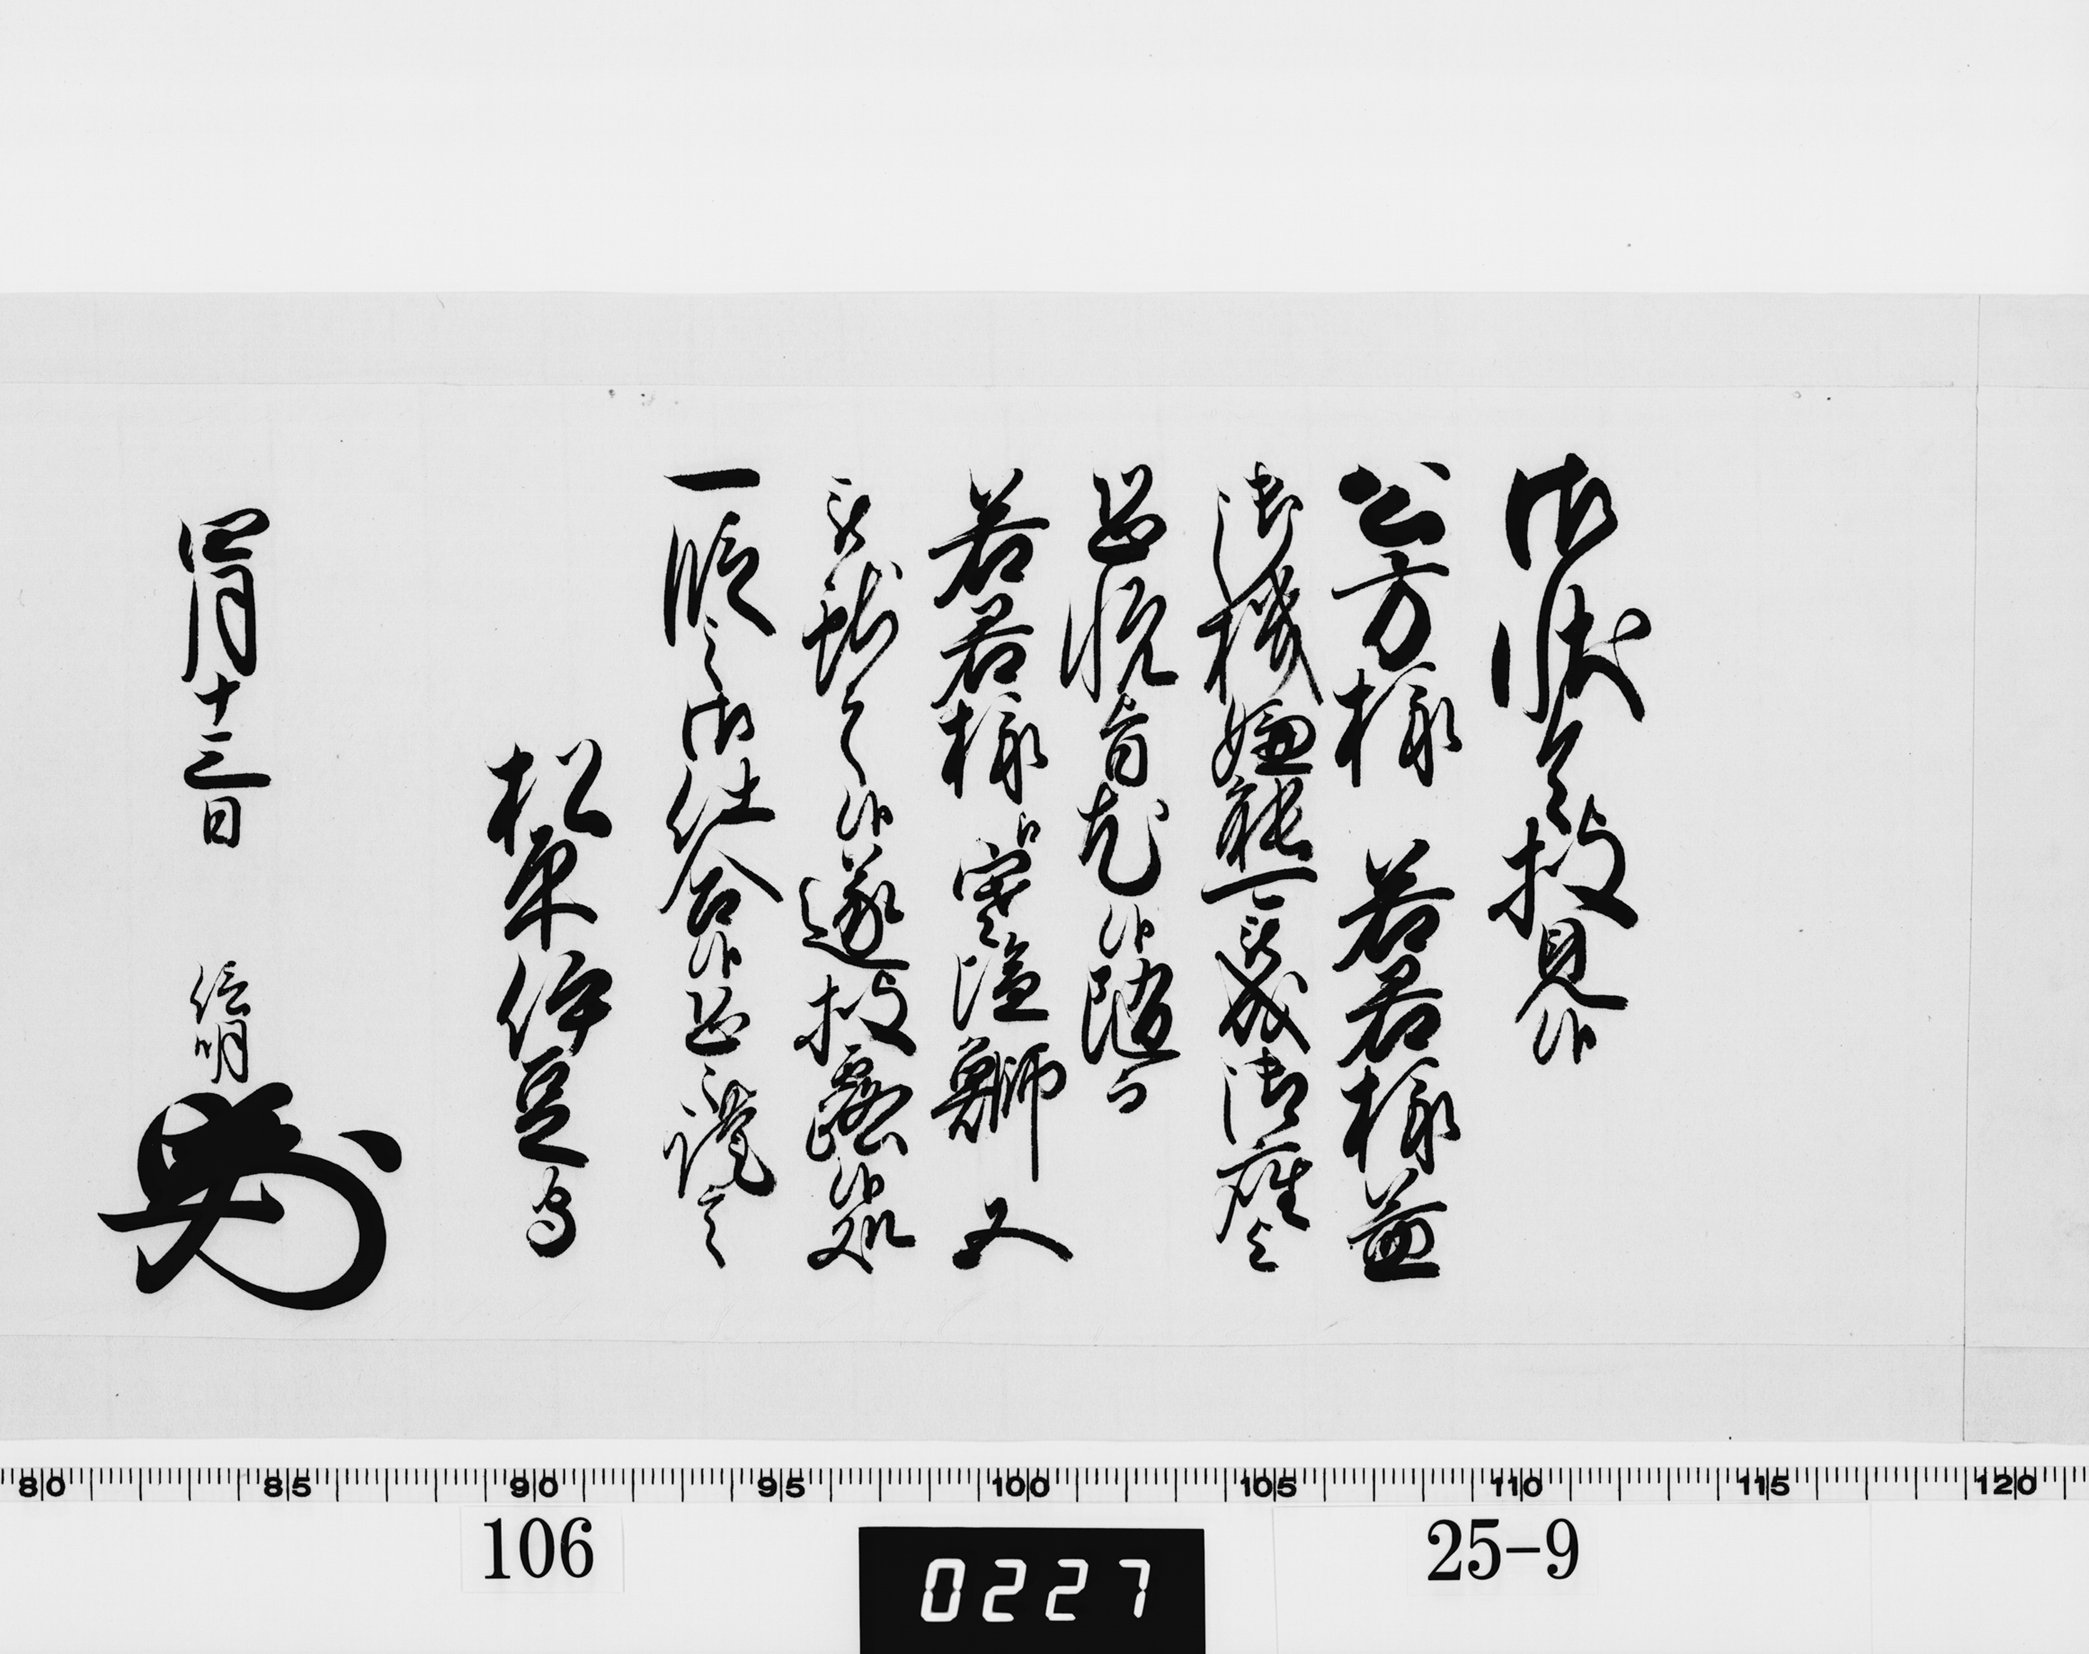 御状令披見候
公方様 若君様益
御機嫌能被成御座
恐悦旨尤候随而
若君様江寒塩鰤五
被献之候遂披露候処
一段之御仕合候恐々謹言
松平伊豆守
四月十三日 信明
80 85 90 95 100 105 110 115 120
106
0227
25-9